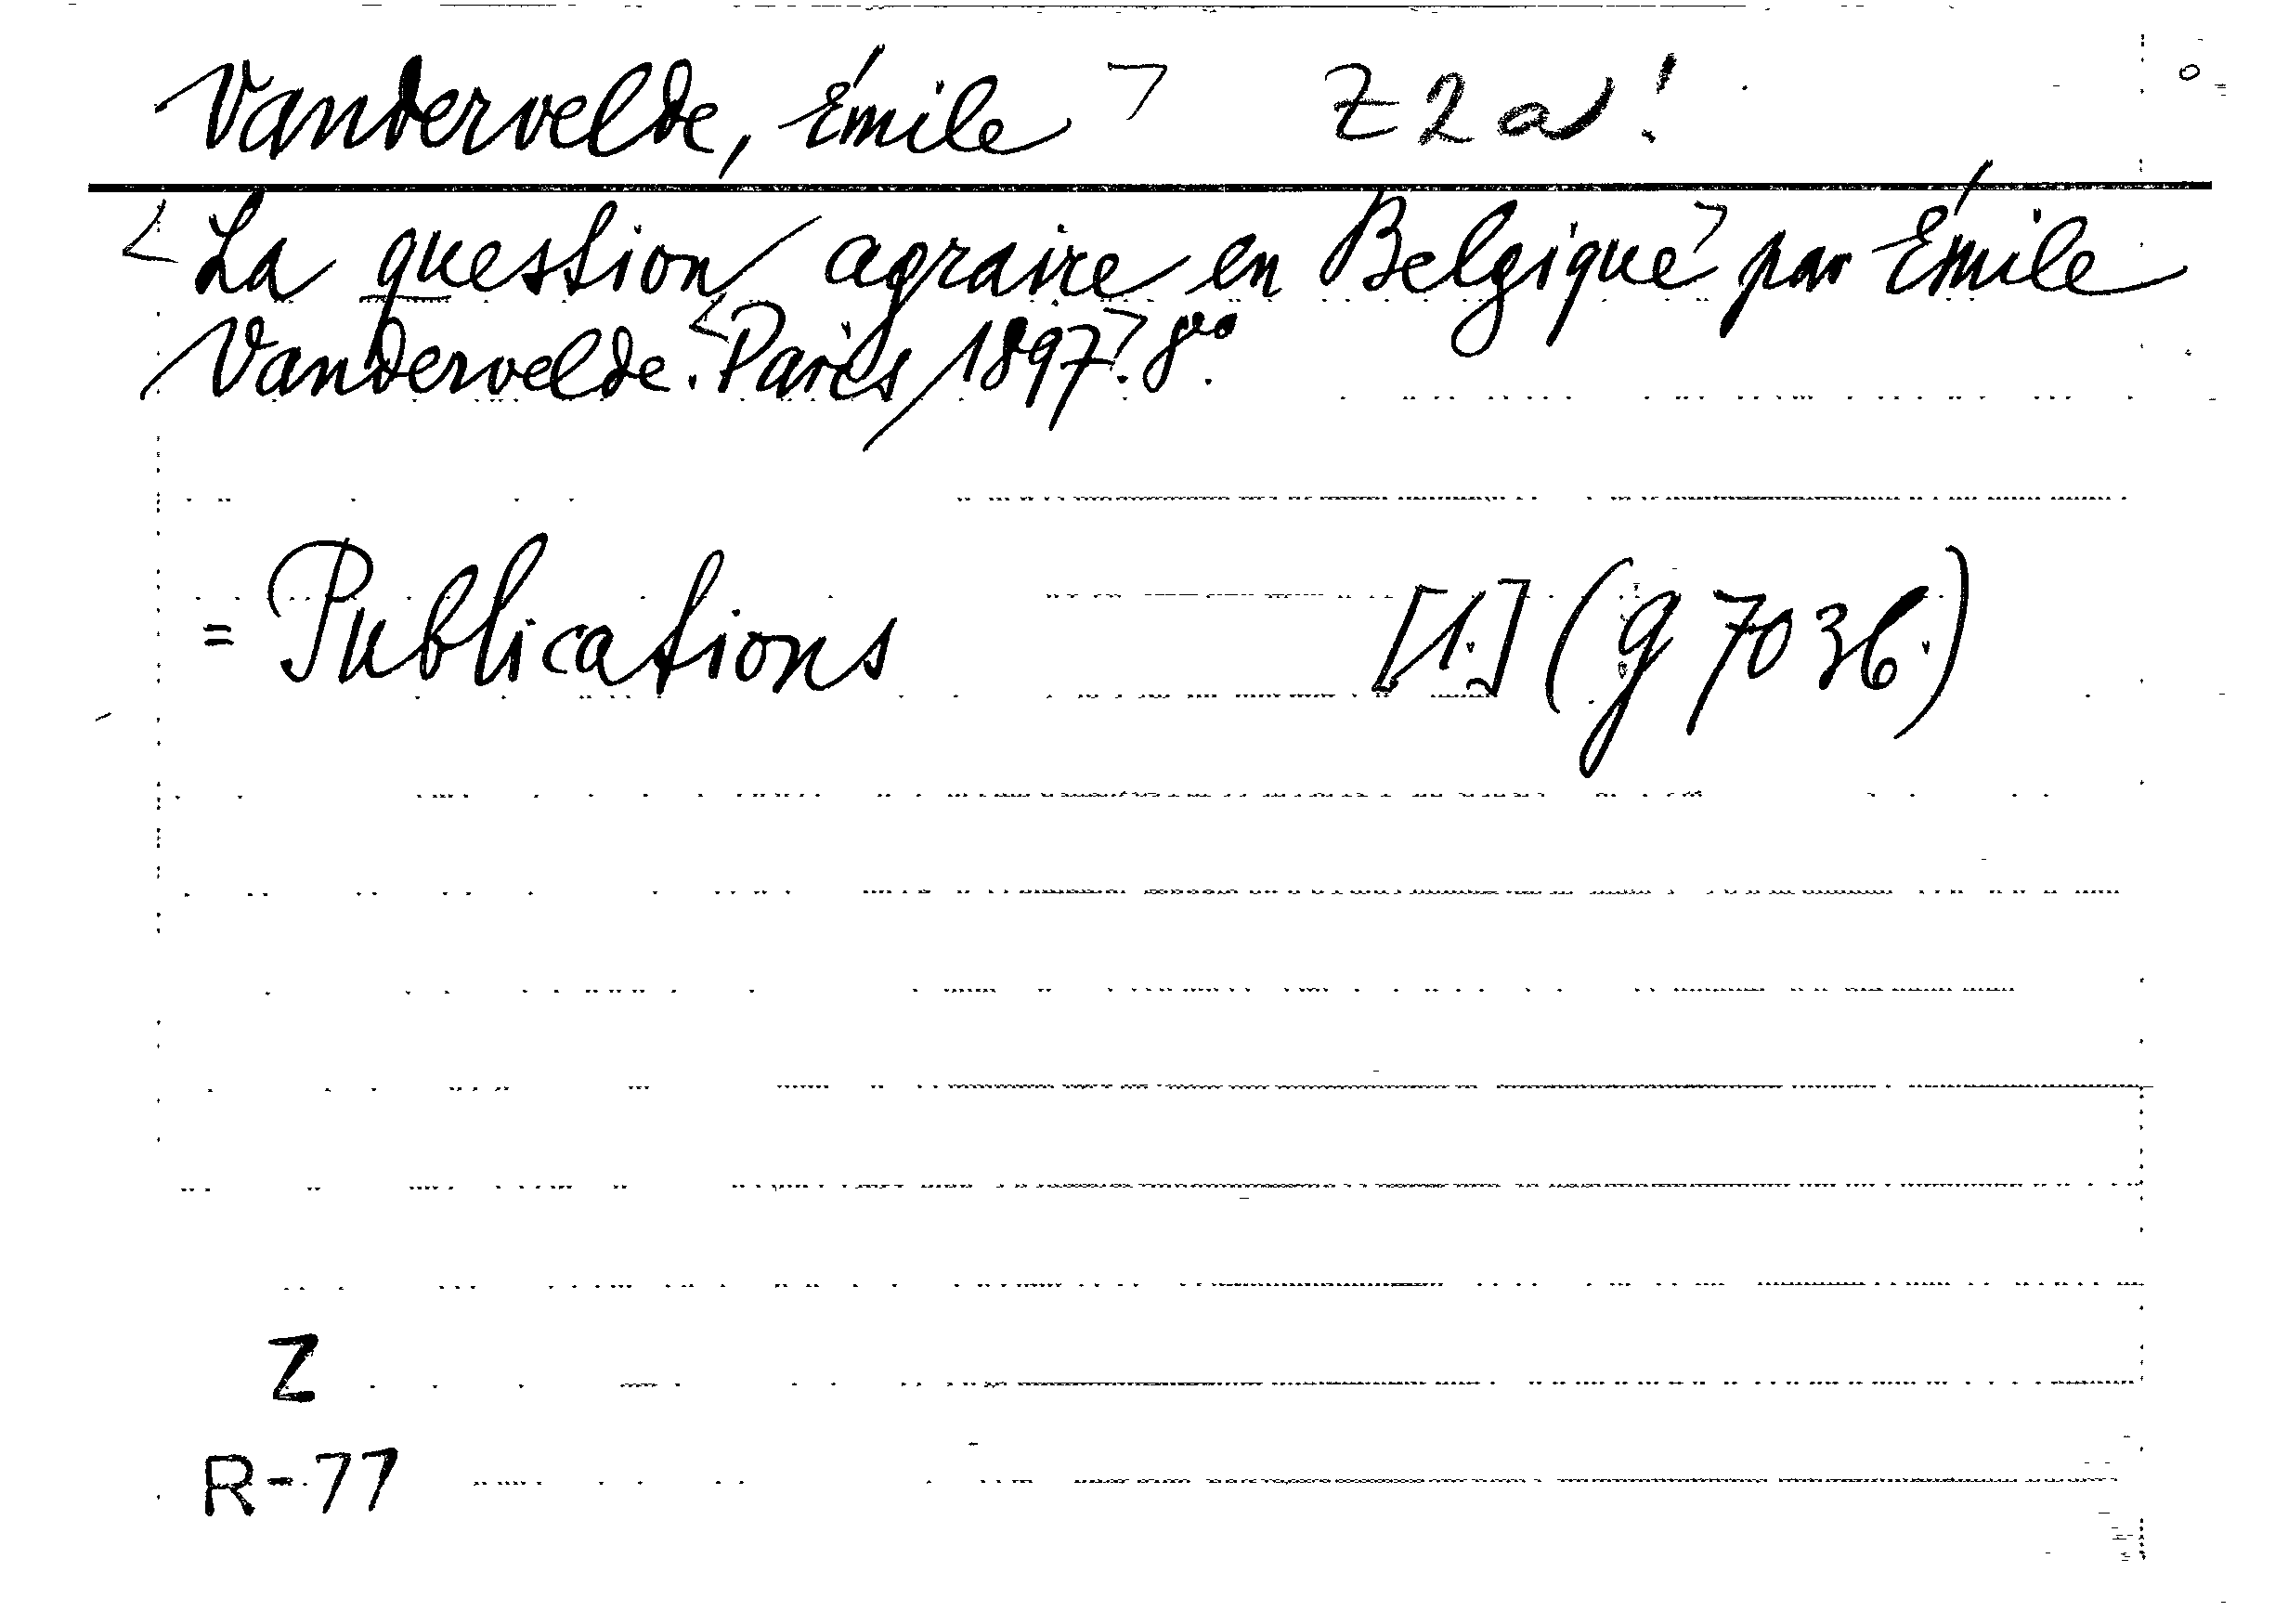 Vandervelde, Émile ⁊ Z 2 a !
<La question agraire en Belgique> par Émile
Vandervelde. <Paris, 1897>. 8vo.
= Publications [1.] (g 7036.)
Z
R-77